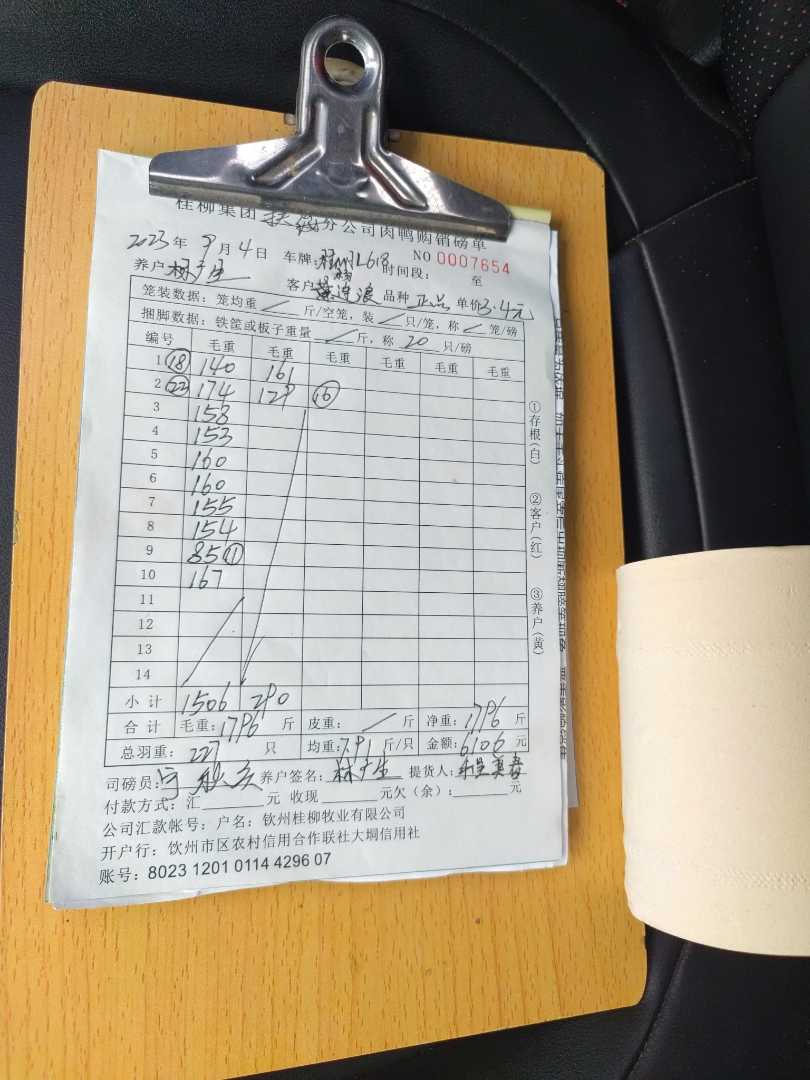 桂柳集团 分公司肉鸭购销磅单
2023年 9月 4日 车牌: L618 NO 0007654
养户 林产生 客户 连浪 时间段: 至
品种 正品 单价 3.4元
笼装数据: 笼均重 / 斤/空笼, 装 / 只/笼, 称 / 笼/磅
捆脚数据: 铁筐或板子重量 / 斤, 称 20 只/磅
编号 毛重 毛重 毛重 毛重 毛重 毛重
1 ⑱ 140 161
2 ㉒ 174 129 ⑯
3 158
4 153
5 160
6 160
7 155
8 154
9 85 ⑪
10 167
11
12
13
14
小计 1506 290
合计 毛重: 1796 斤 皮重: / 斤 净重: 1796 斤
总羽重: 227 只 均重: 7.91 斤/只 金额: 6106 元
司磅员: 养户签名: 林产生 提货人:
付款方式: 汇 元 收现 元欠(余): 元
公司汇款帐号: 户名: 钦州桂柳牧业有限公司
开户行: 钦州市区农村信用合作联社大垌信用社
账号: 8023 1201 0114 4296 07
①存根(白) ②客户(红) ③养户(黄)